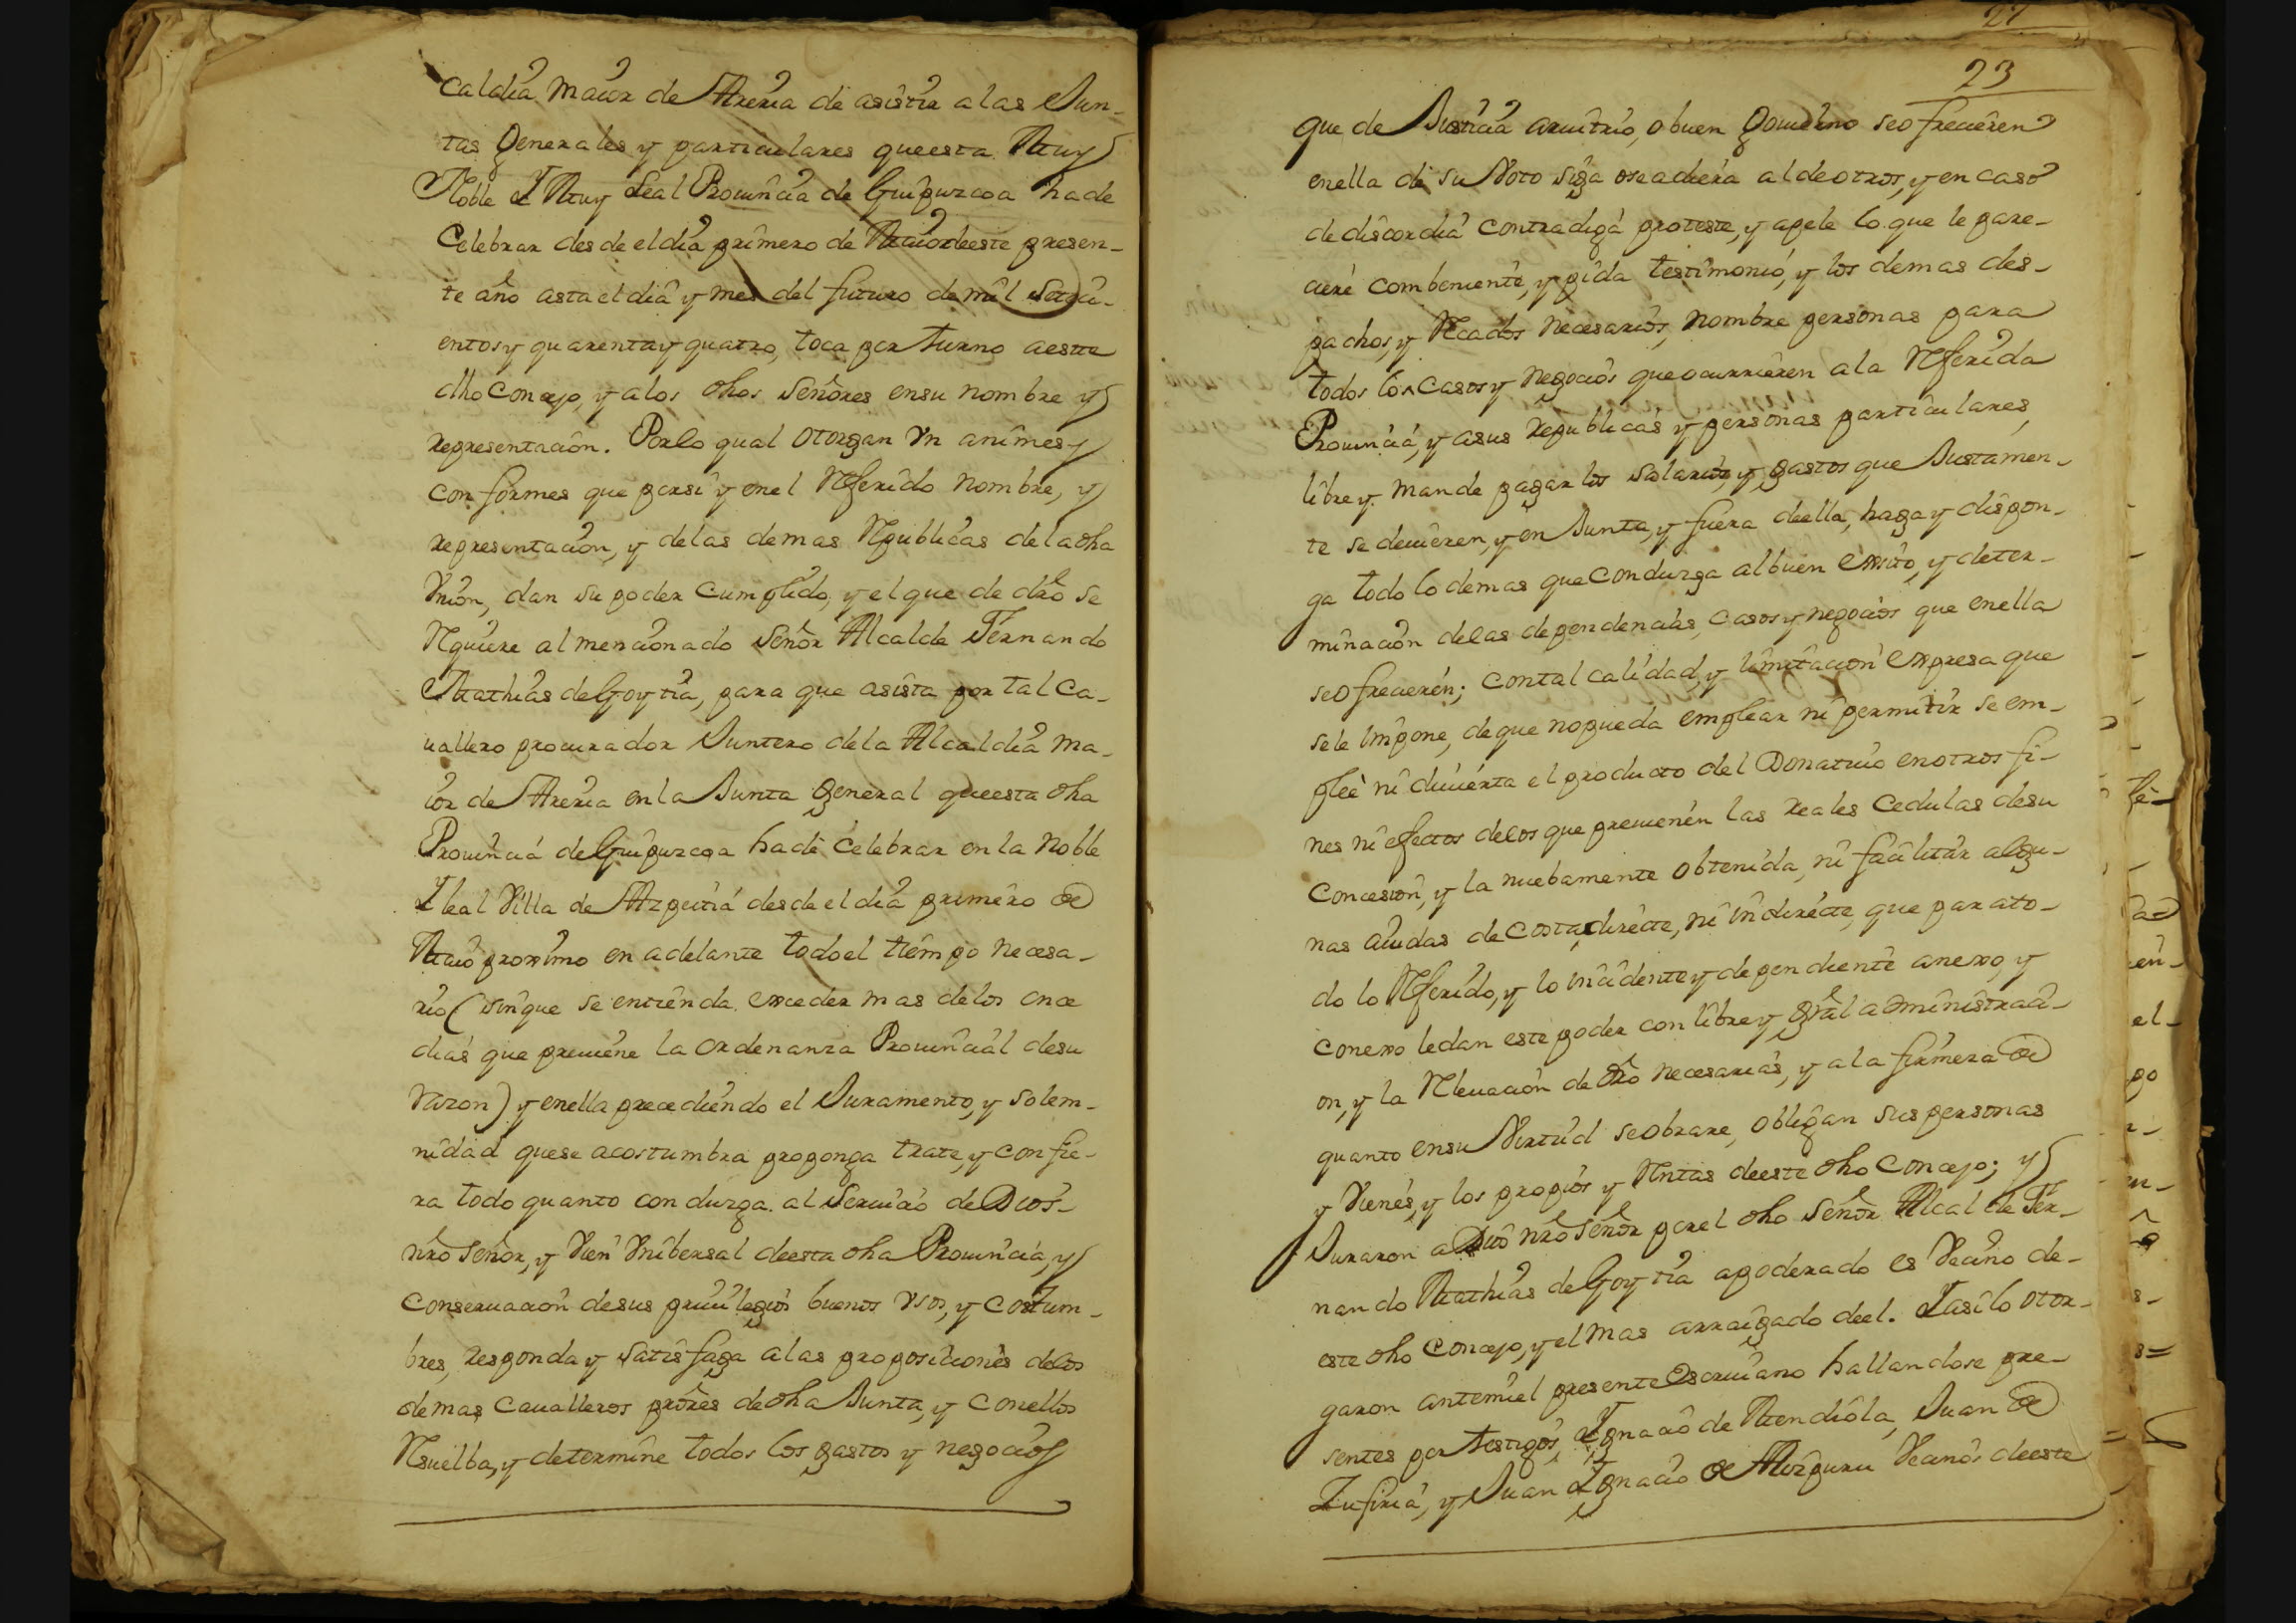 caldia maior de Areria de asistir a las Jun-
tas Generales y particulares que esta Muy
Noble Y Muy Leal Prouincia de Guipuzcoa ha de
Celebrar desde el dia primero de Maio de este presen-
te año asta el dia y mes del futuro de mil Setezi-
entos y quarenta y quatro, toca por turno a este
dho Concejo, y a los dhos Señores en su nombre y
representacion. Por lo qual otorgan Vnanimes y
conformes que por si y en el Referido nombre, y
representacion, y de las demas Republicas de la dha
Vnion, dan su poder cumplido, y el que de dro se
Requiere al mencionado Señor Alcalde Fernando
Mathias de Goytia, para que asista por tal Ca-
uallero procurador Juntero de la Alcaldia Ma-
ior de Areria en la Junta General que esta dha
Prouincia de Guipuzcoa ha de Celebrar en la Noble
Y leal Villa de Azpeitia desde el dia primero de
Maio proximo en adelante todo el tiempo necesa-
rio (sin que se entienda exceder mas de los once
dias que preuiene la ordenanza Prouincial de su
razon) y en ella precediendo el Juramento, y solem-
nidad que se acostumbra proponga trate, y confie-
ra todo quanto conduzga al Seruicio de Dios
nro Señor, y Vien Vnibersal de esta dha Prouincia, y
conseruacion de sus priuilegios buenos Vsos, y costum-
bres, responda y satisfaga a las proposiciones de los
demas Caualleros prores de dha Junta, y con ellos
Resuelba, y determine todos los gastos y negocios
23
que de Justicia aruitrio, o buen Gouierno se ofrecieren
en ella de su Voto siga o se adiera al de otros, y en caso
de discordia contradiga proteste, y apele lo que le pare-
ciere combeniente, y pida testimonio, y los demas des-
pachos, y Recados necesarios, nombre personas para
todos los casos y negocios que ocurrieren a la Referida
Prouincia, y a sus republicas y personas particulares,
libre y mande pagar los salarios, y gastos que Justamen-
te se deuieren, y en Junta, y fuera de ella, haga y dispon-
ga todo lo demas que conduzga al buen exsito, y deter-
minacion de las dependencias, casos y negocios que en ella
se ofrecieren; con tal calidad, y limitacion expresa que
se le impone, de que no pueda emplear ni permitir se em-
plee ni diuierta el producto del Donatiuo en otros fi-
nes ni efectos de los que preuienen las reales Cedulas de su
Concesion, y la nuebamente obtenida, ni facilitar algu-
nas aiudas de costa, directe, ni indirecte, que para to-
do lo Referido, y lo incidente y dependiente anexo, y
conexo le dan este poder con libre y gral administraci-
on, y la Releuacion de dro necesarias, y a la firmeza de
quanto en su Virtud se obrare, obligan sus personas
y Vienes, y los propios y Rentas de este dho Concejo; y
Juraron a Dios nro Señor por el dho Señor Alcalde Fer-
nando Mathias de Goytia apoderado es Vecino de
este dho Concejo, y el mas arraigado de el. Y asi lo otor-
garon ante mi el presente Escriuano hallandose pre-
sentes por testigos, Ygnacio de Mendiola, Juan de
Zufiria, y Juan Ygnacio de Aluzpuru Vecinos de este